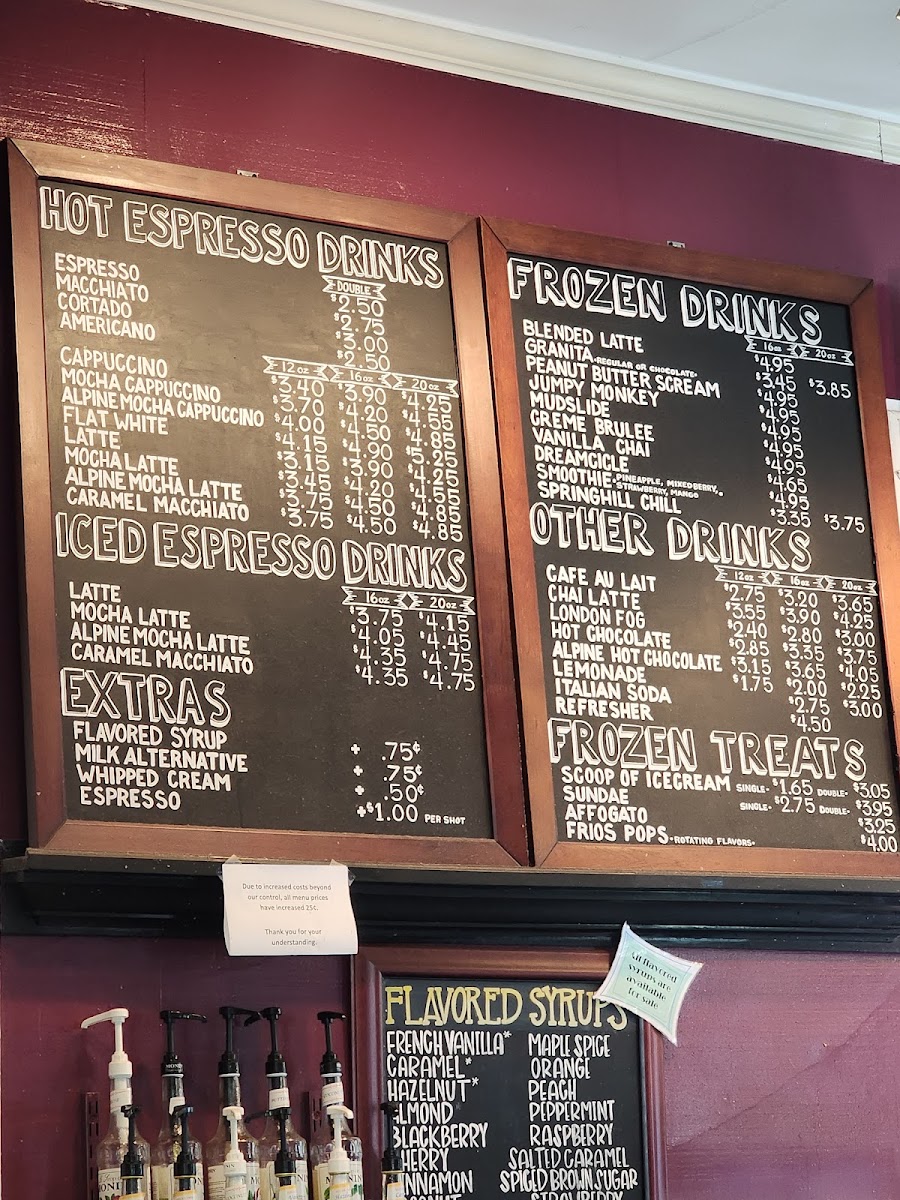 HOT ESPRESSO DRINKS
DOUBLE
ESPRESSO $2.50
MACCHIATO $2.75
CORTADO $3.00
AMERICANO $2.50
12oz 16oz 20oz
CAPPUCCINO $3.40 $3.90 $4.25
MOCHA CAPPUCCINO $3.70 $4.20 $4.55
ALPINE MOCHA CAPPUCCINO $4.00 $4.50 $4.85
FLAT WHITE $4.15 $4.90 $5.25
LATTE $3.15 $3.90 $4.25
MOCHA LATTE $3.45 $4.20 $4.55
ALPINE MOCHA LATTE $3.75 $4.50 $4.85
CARAMEL MACCHIATO $3.75 $4.50 $4.85
ICED ESPRESSO DRINKS
16oz 20oz
LATTE $3.75 $4.15
MOCHA LATTE $4.05 $4.45
ALPINE MOCHA LATTE $4.35 $4.75
CARAMEL MACCHIATO $4.35 $4.75
EXTRAS
FLAVORED SYRUP + .75¢
MILK ALTERNATIVE + .75¢
WHIPPED CREAM + .50¢
ESPRESSO +$1.00 PER SHOT
FROZEN DRINKS
16oz 20oz
BLENDED LATTE $4.95
GRANITA -REGULAR OR CHOCOLATE- $3.45 $3.85
PEANUT BUTTER SCREAM $4.95
JUMPY MONKEY $4.95
MUDSLIDE $4.95
CREME BRULEE $4.95
VANILLA CHAI $4.95
DREAMCICLE $4.65
SMOOTHIE -PINEAPPLE, MIXED BERRY, STRAWBERRY, MANGO $4.95
SPRINGHILL CHILL $3.35 $3.75
OTHER DRINKS
12oz 16oz 20oz
CAFE AU LAIT $2.75 $3.20 $3.65
CHAI LATTE $3.55 $3.90 $4.25
LONDON FOG $2.40 $2.80 $3.00
HOT CHOCOLATE $2.85 $3.35 $3.75
ALPINE HOT CHOCOLATE $3.15 $3.65 $4.05
LEMONADE $1.75 $2.00 $2.25
ITALIAN SODA $2.75 $3.00
REFRESHER $4.50
FROZEN TREATS
SCOOP OF ICECREAM SINGLE- $1.65 DOUBLE- $3.05
SUNDAE SINGLE- $2.75 DOUBLE- $3.95
AFFOGATO $3.25
FRIOS POPS -ROTATING FLAVORS- $4.00
Due to increased costs beyond
our control, all menu prices
have increased 25¢.
Thank you for your
understanding.
All flavored
syrups are
available
for sale
FLAVORED SYRUPS
FRENCH VANILLA*
CARAMEL*
HAZELNUT*
ALMOND
BLACKBERRY
CHERRY
CINNAMON
MAPLE SPICE
ORANGE
PEACH
PEPPERMINT
RASPBERRY
SALTED CARAMEL
SPICED BROWN SUGAR
STRAWBERRY